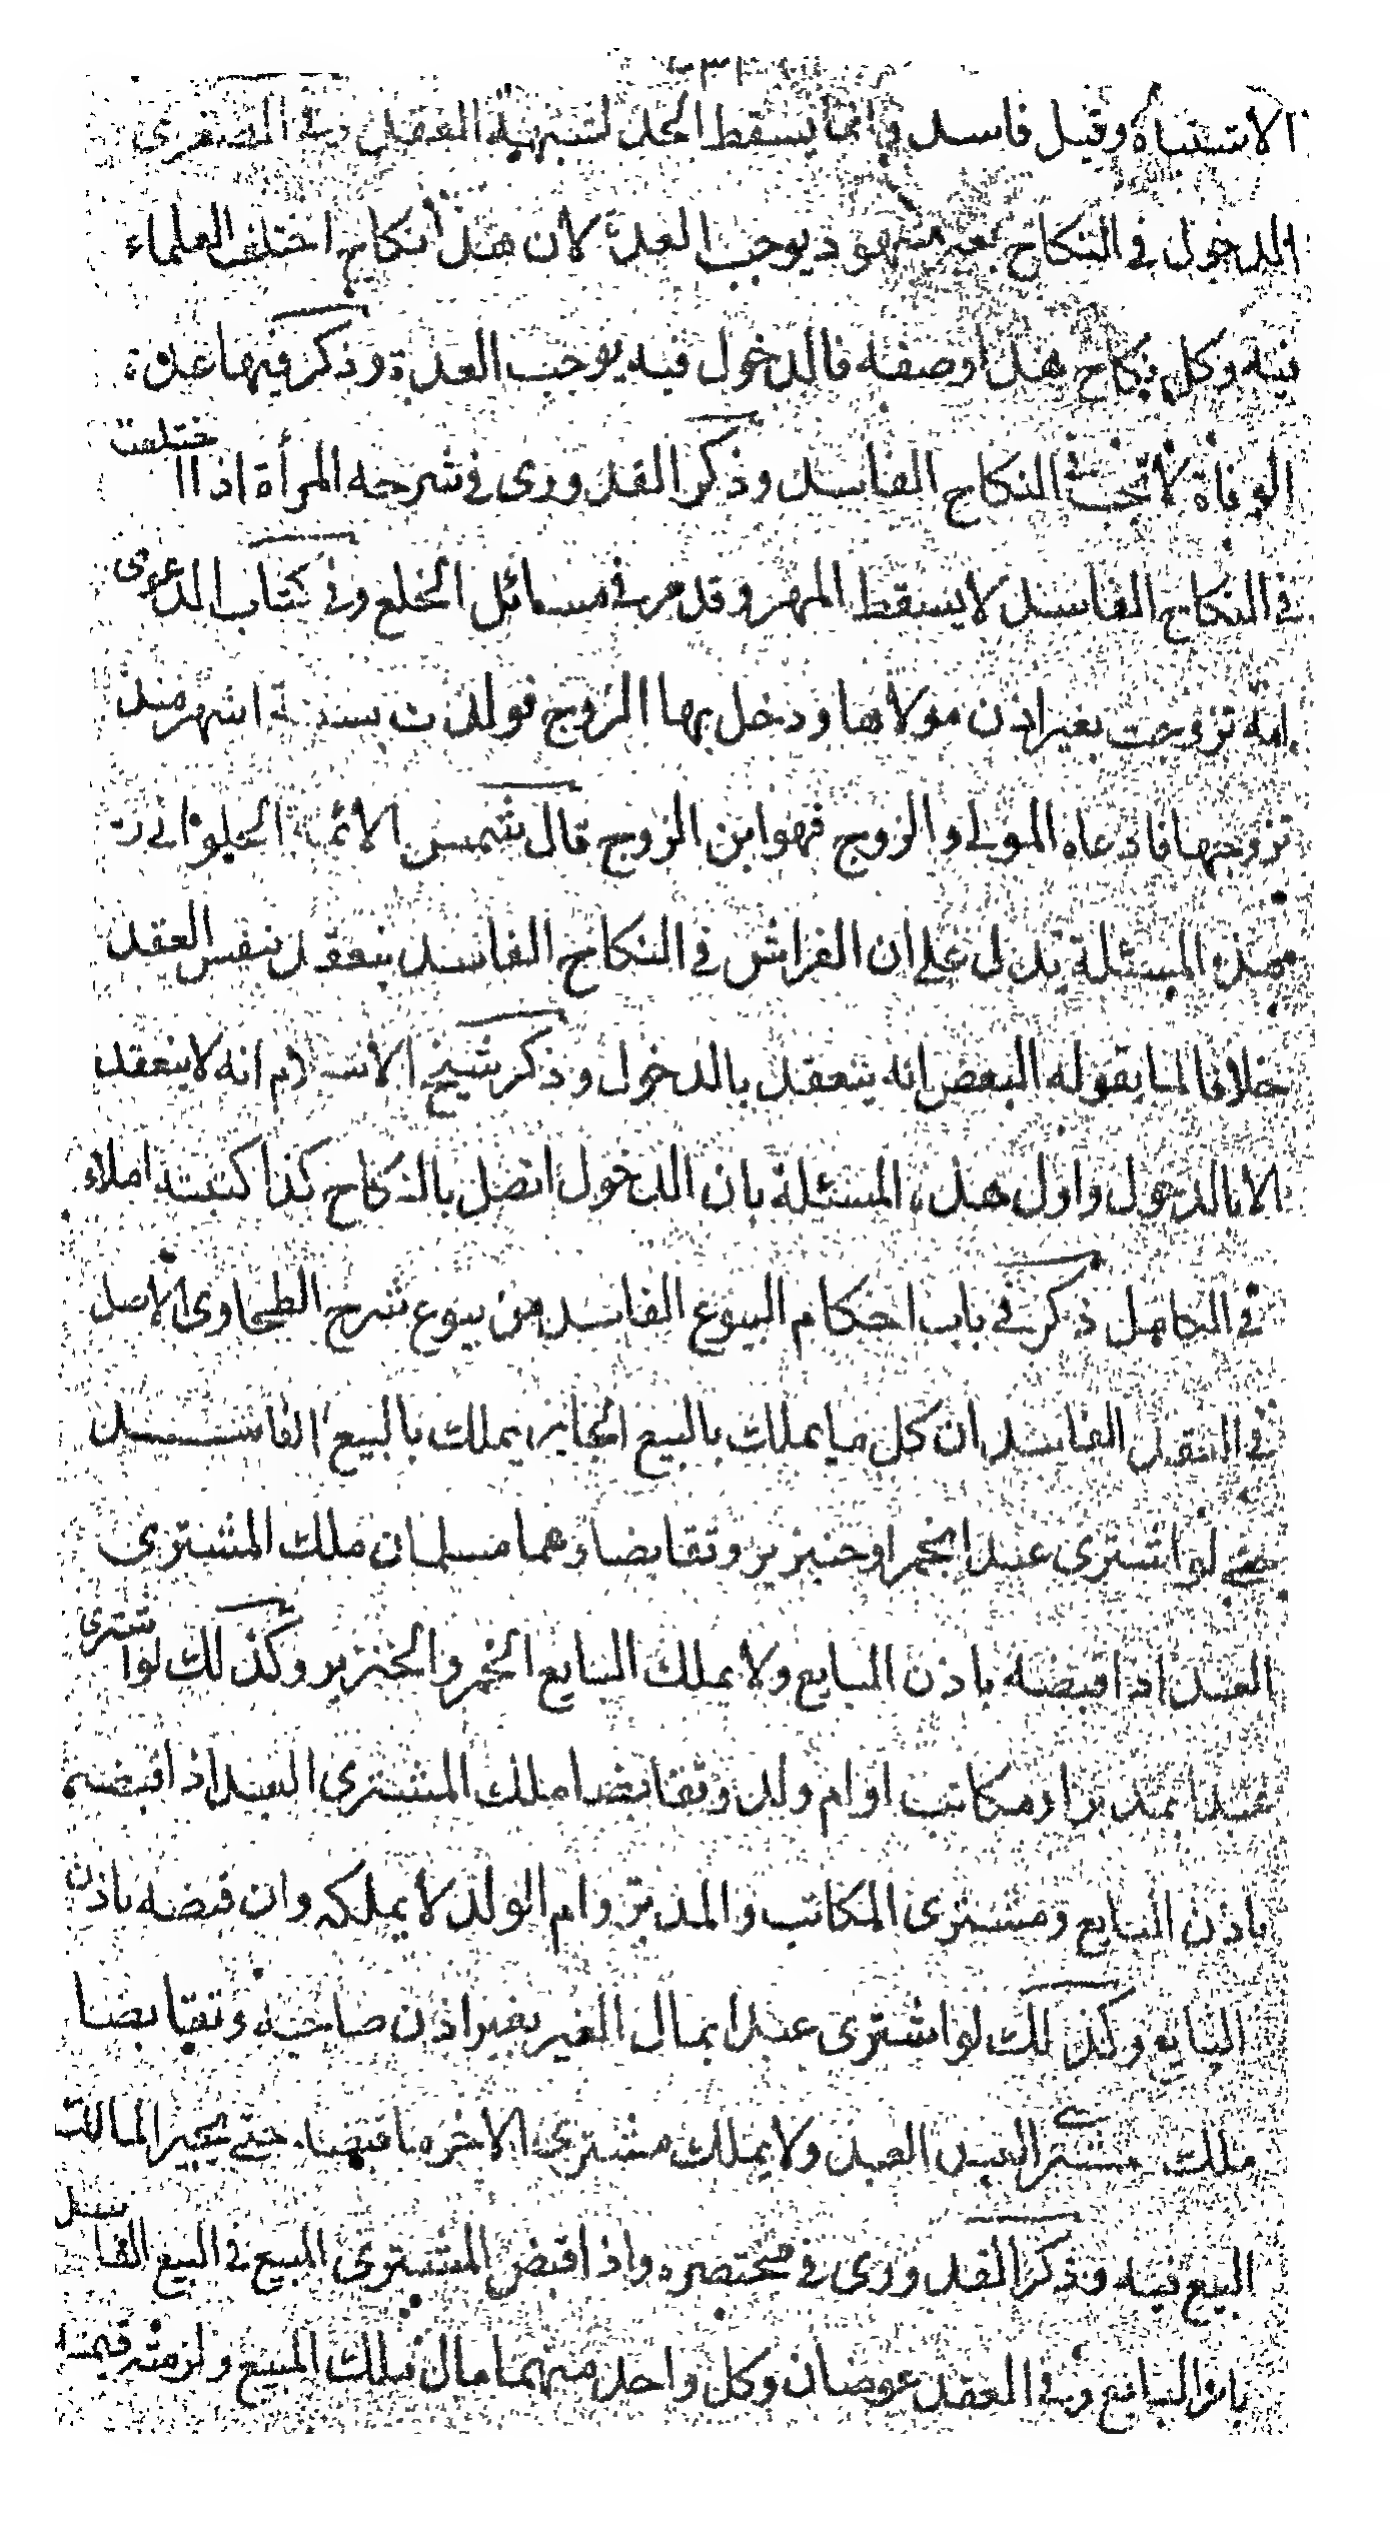 الاشتباه وقيل فاسد وانما يسقط الحد لشبهة العقد وفي الصغرى
الدخول في النكاح بغير شهود يوجب العدة لان هذا نكاح اختلف العلماء
فيه وكل نكاح هذا وصفه فالدخول فيه يوجب العدة وذكر فيها عدة
الوفاة لا تجب في النكاح الفاسد وذكر القدوري في شرحه المرأة اذا اختلعت
في النكاح الفاسد لا يسقط المهر وقد مر في مسائل الخلع وفي كتاب الدعوى
امة تزوجت بغير اذن مولاها ودخل بها الزوج فولدت ستة اشهر منذ
تزوجها فادعاه المولى والزوج فهو ابن الزوج قال شمس الائمة الحلوانى رح
هذه المسئلة تدل على ان الفراش في النكاح الفاسد ينعقد بنفس العقد
خلافا لما يقوله البعض انه ينعقد بالدخول وذكر شيخ الاسلام انه لا ينعقد
الا بالدخول واول هذه المسئلة بان الدخول اتصل بالنكاح كذا كتبته املاء
في الحاصل ذكر في باب احكام البيوع الفاسدة من بيوع شرح الطحاوى الاصل
في العقد الفاسد ان كل ما يملك بالبيع الجايز يملك بالبيع الفاسد
حتى لو اشترى عبدا بخمر او خنزير وتقابضا وهما مسلمان ملك المشترى
العبد اذا قبضه باذن البايع ولا يملك البايع الخمر والخنزير وكذلك لو اشترى
عبدا بمدبر او مكاتب او ام ولد وتقابضا ملك المشترى العبد اذا قبضه
باذن البايع ومشترى المكاتب والمدبر وام الولد لا يملكه وان قبضه باذن
البايع وكذلك لو اشترى عبدا بمال الغير بغير اذن صاحبه وتقابضا
ملك مشترى العبد العبد ولا يملك مشترى الاخر ما قبضه حتى يجيز المالك
البيع فيه وذكر القدورى في مختصره واذا قبض المشترى المبيع في البيع الفاسد
بامر البايع وفي العقد عوضان وكل واحد منهما مال ملك المبيع ولزمته قيمته